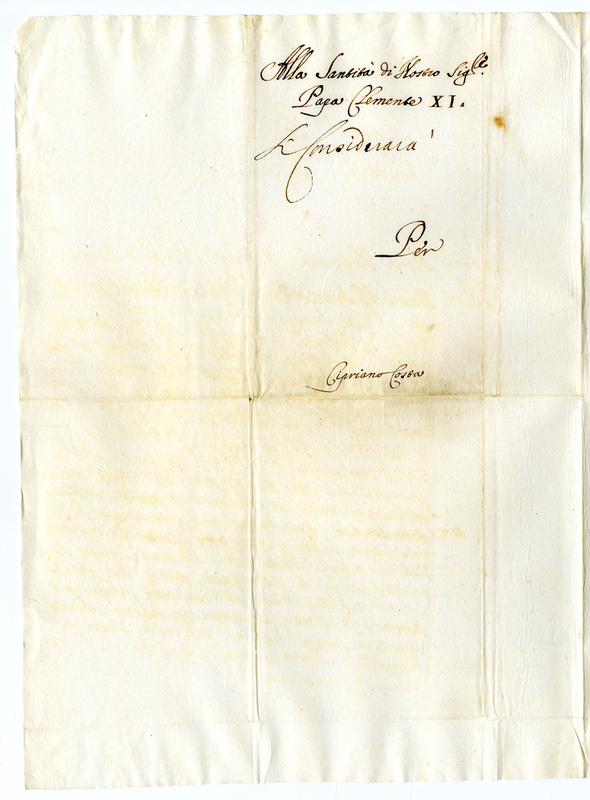 Alla Santità di Nostro Sig.re
Papa Clemente XI.
Si Considerarà
Per
Cipriano Costa